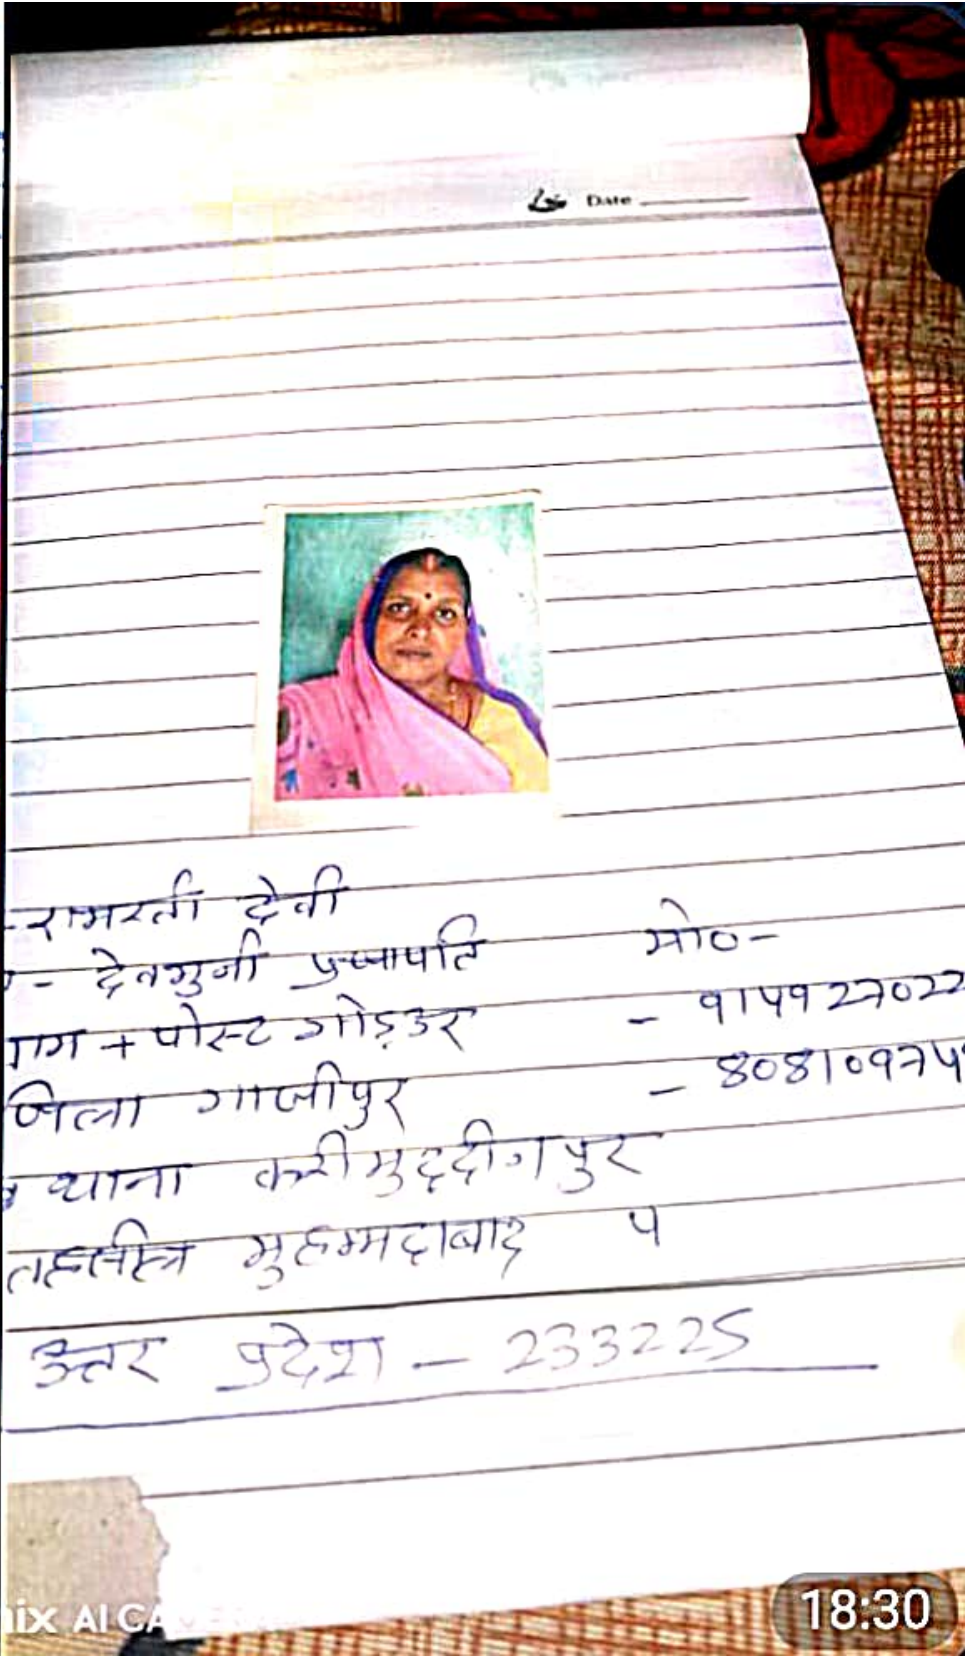 Date
-रामरती देवी
- देवमुनी प्रजापति मो०-
ग्राम + पोस्ट गोड़उर
जिला गाजीपुर
थाना करीमुद्दीनपुर
तहसील मुहम्मदाबाद प
उत्तर प्रदेश - 233225
AI
18:30